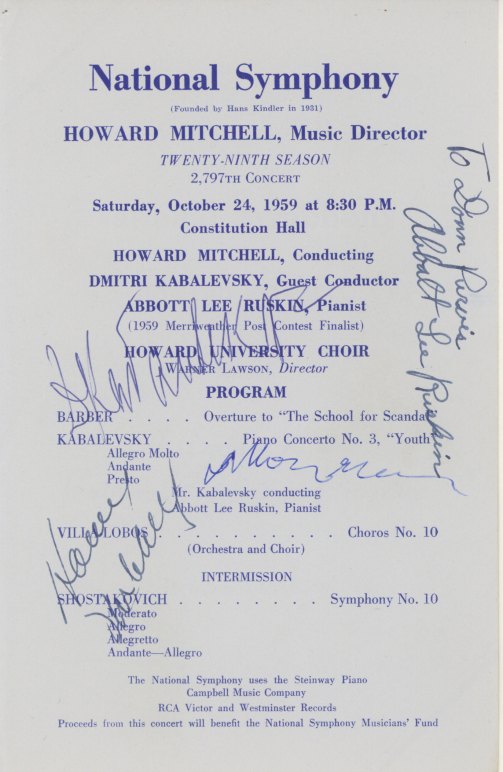 National Symphony
(Founded by Hans Kindler in 1931)
HOWARD MITCHELL, Music Director
TWENTY-NINTH SEASON
2,797TH CONCERT
Saturday, October 24, 1959 at 8:30 P.M.
Constitution Hall
HOWARD MITCHELL, Conducting
DMITRI KABALEVSKY, Guest Conductor
ABBOTT LEE RUSKIN, Pianist
(1959 Merriweather Post Contest Finalist)
HOWARD UNIVERSITY CHOIR
WARNER LAWSON, Director
PROGRAM
BARBER . . . . Overture to "The School for Scandal"
KABALEVSKY . . . . Piano Concerto No. 3, "Youth"
Allegro Molto
Andante
Presto
Mr. Kabalevsky conducting
Abbott Lee Ruskin, Pianist
VILLA-LOBOS . . . . . . . . . . Choros No. 10
(Orchestra and Choir)
INTERMISSION
SHOSTAKOVICH . . . . . . . Symphony No. 10
Moderato
Allegro
Allegretto
Andante—Allegro
The National Symphony uses the Steinway Piano
Campbell Music Company
RCA Victor and Westminster Records
Proceeds from this concert will benefit the National Symphony Musicians' Fund
To Donn Purvis
Abbott Lee Ruskin